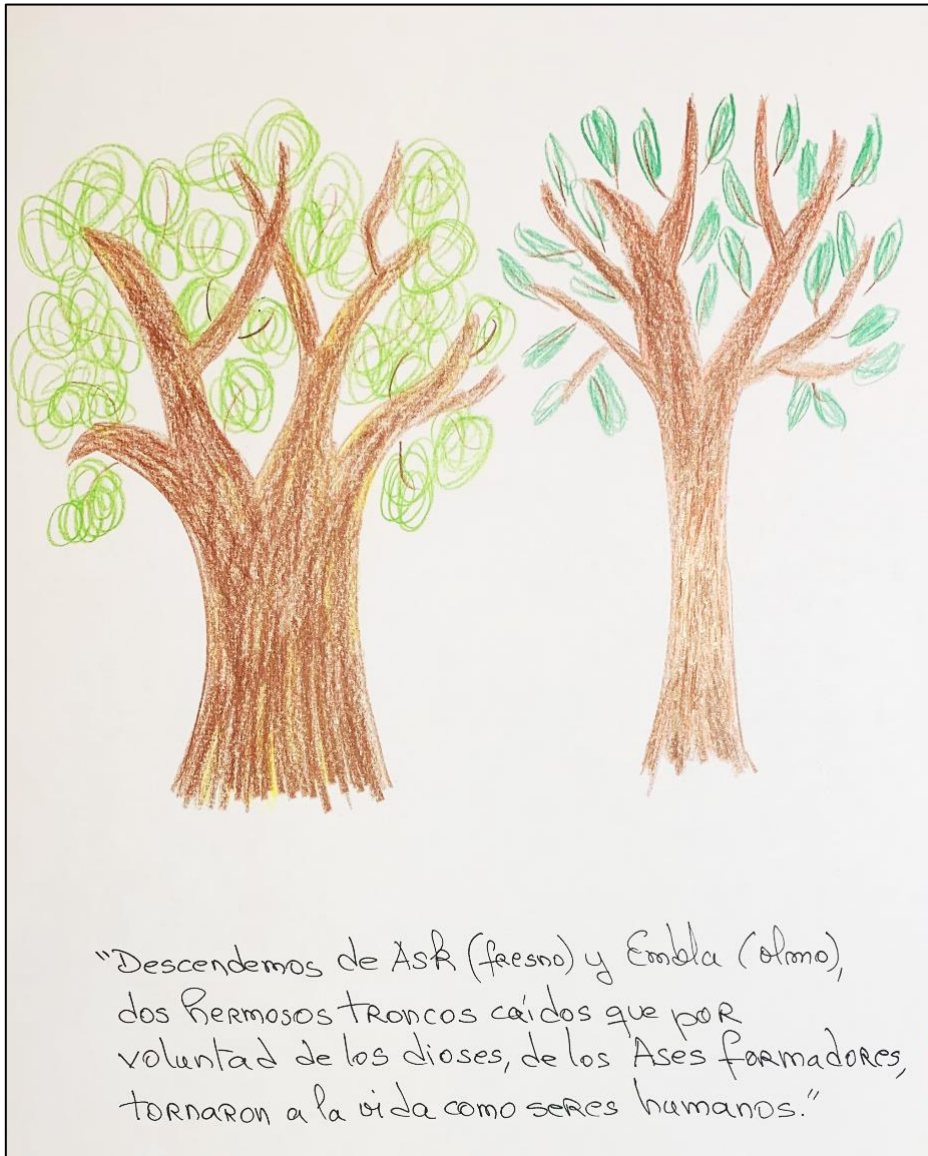 "Descendemos de Ask (fresno) y Embla (olmo),
dos hermosos troncos caídos que por
voluntad de los dioses, de los Ases formadores,
tornaron a la vida como seres humanos."